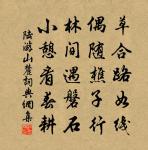 草合路如綫
偶隨樵子行
林間遇磐石
小憩看春耕
陸游山麓詞典網集